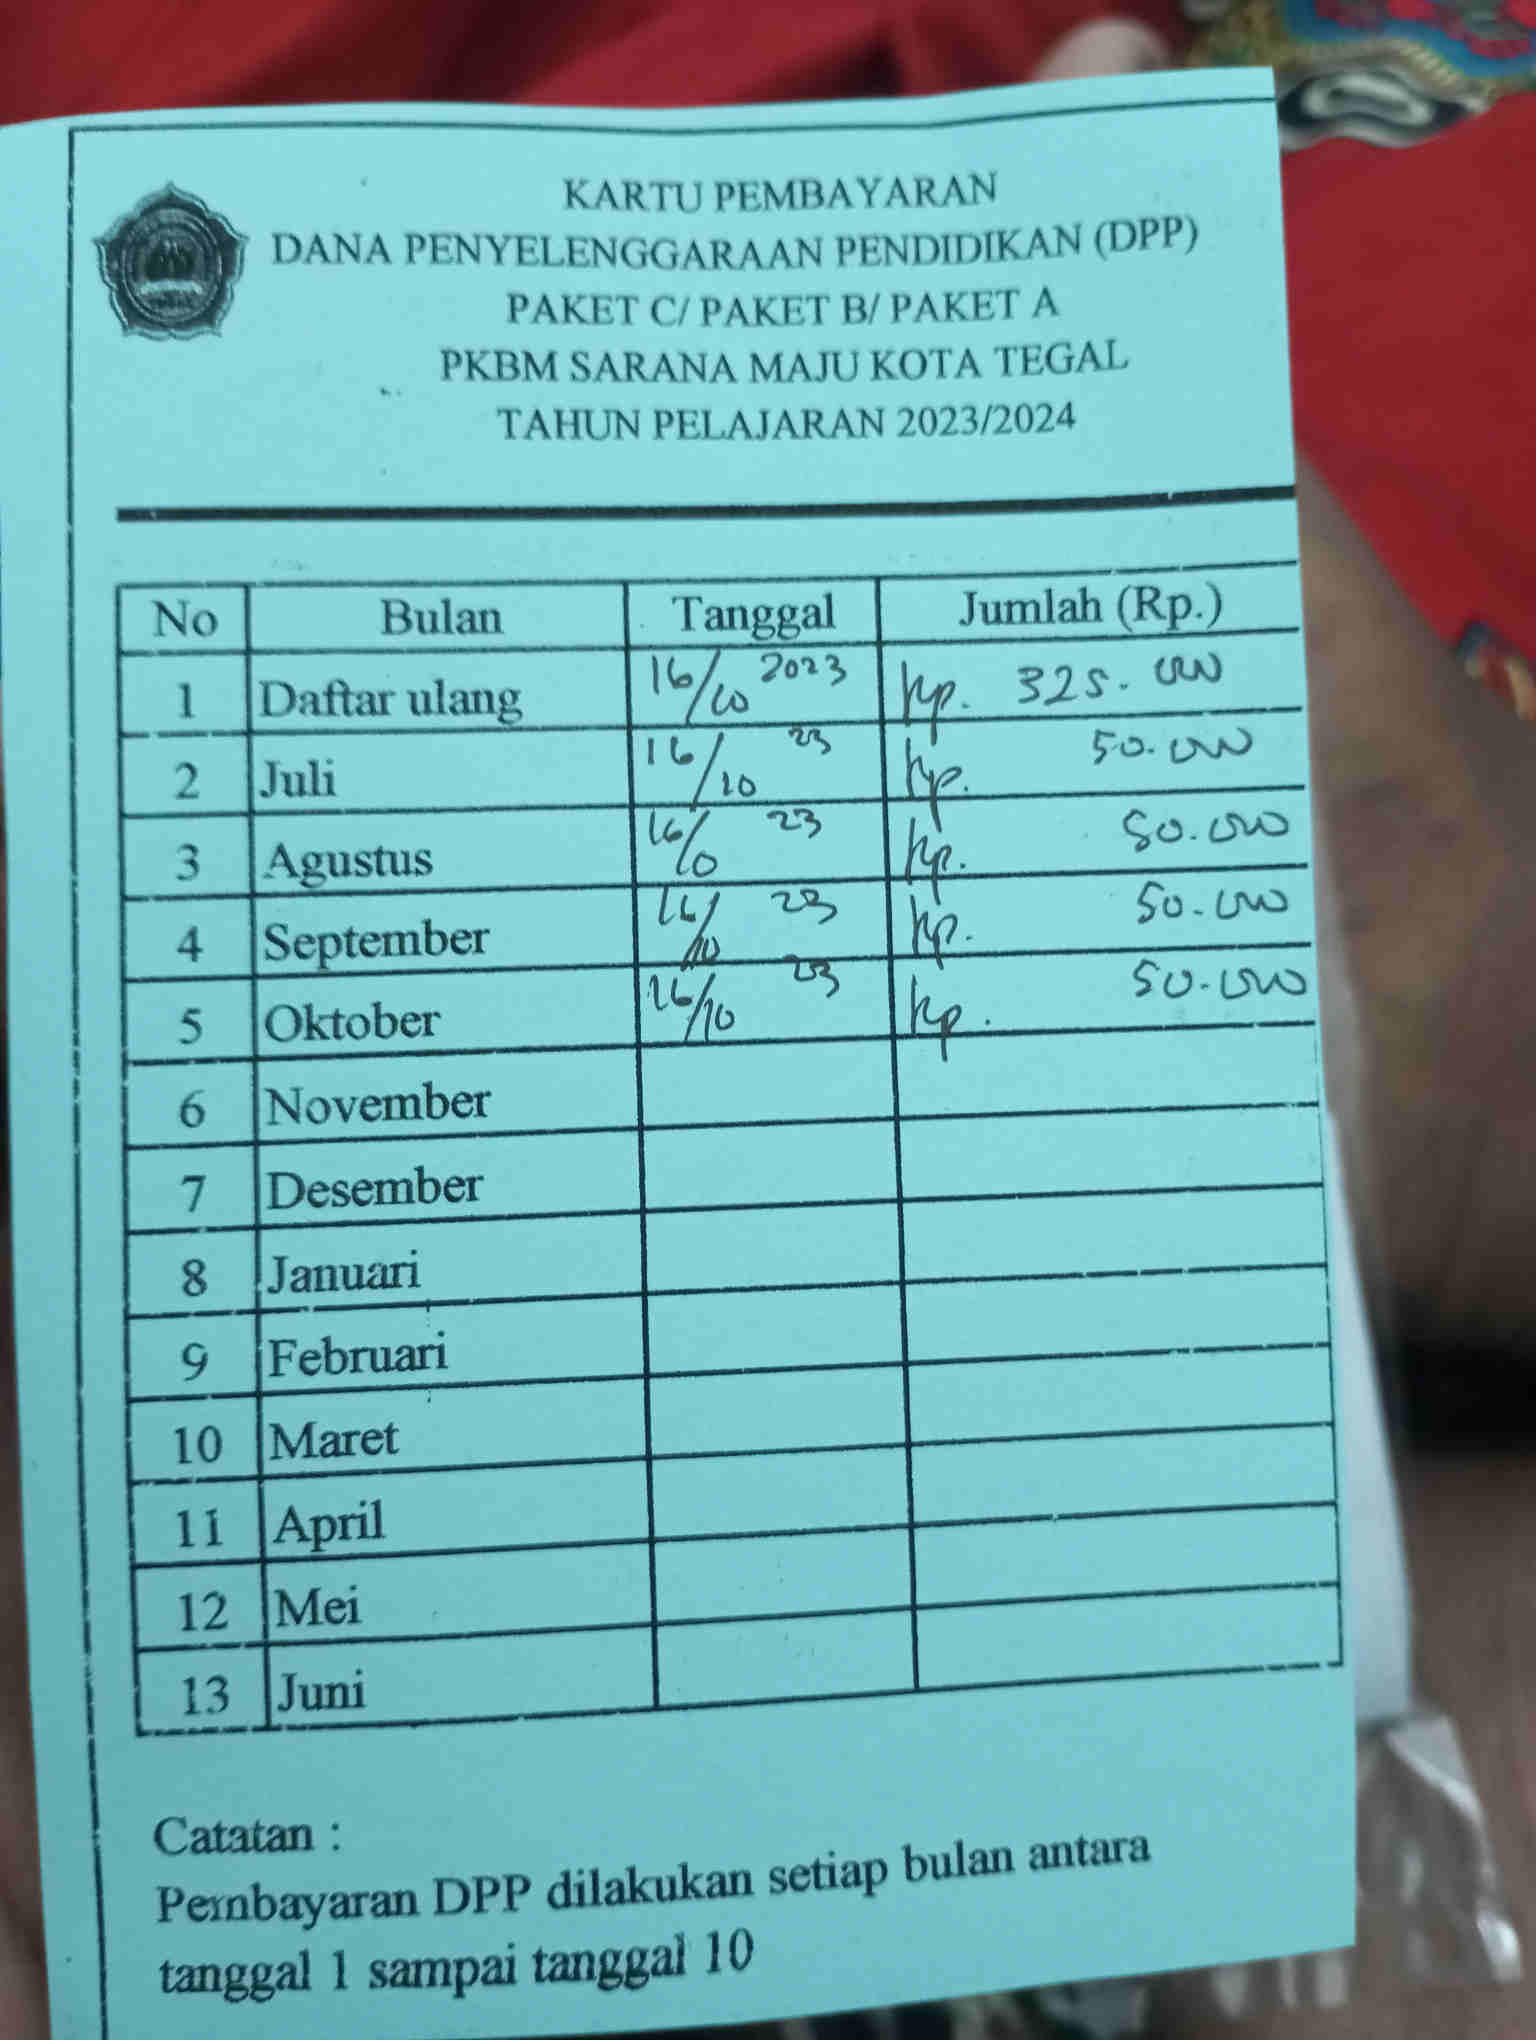 KARTU PEMBAYARAN
DANA PENYELENGGARAAN PENDIDIKAN (DPP)
PAKET C/ PAKET B/ PAKET A
PKBM SARANA MAJU KOTA TEGAL
TAHUN PELAJARAN 2023/2024
No Bulan Tanggal Jumlah (Rp.)
1 Daftar ulang 16/10 2023 Rp. 325.000
2 Juli 16/10 23 Rp. 50.000
3 Agustus 16/10 23 Rp. 50.000
4 September 16/10 23 Rp. 50.000
5 Oktober 16/10 23 Rp. 50.000
6 November
7 Desember
8 Januari
9 Februari
10 Maret
11 April
12 Mei
13 Juni
Catatan :
Pembayaran DPP dilakukan setiap bulan antara
tanggal 1 sampai tanggal 10